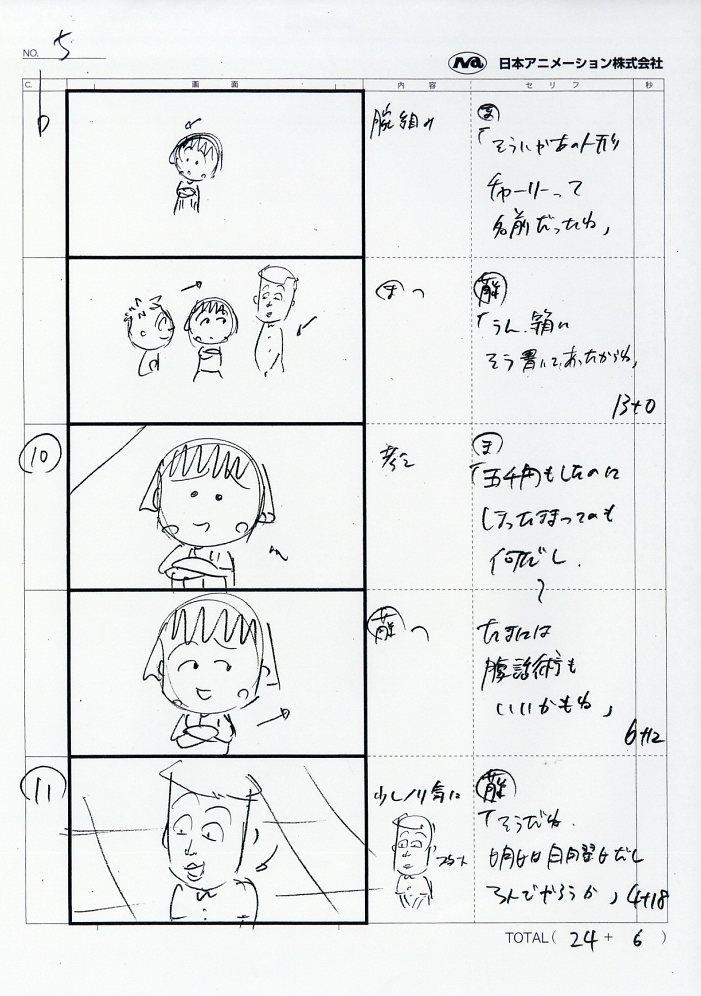 NO. 5
Na 日本アニメーション株式会社
C. 画面 内容 セリフ 秒
腕組み
ま
「そういやあの人形
チャーリーって
名前だったね」
ま へ
「うん、箱に
そう書いてあったからね」
13+0
10
考え
ま
「五千円もしたのに
しまったまってのも
何だし、
たまには
腹話術も
いいかもね」
6+12
11
少しノリ気に
「そうだね、
明日は日曜日だし
みんなでやろうか」4+18
TOTAL( 24 + 6 )